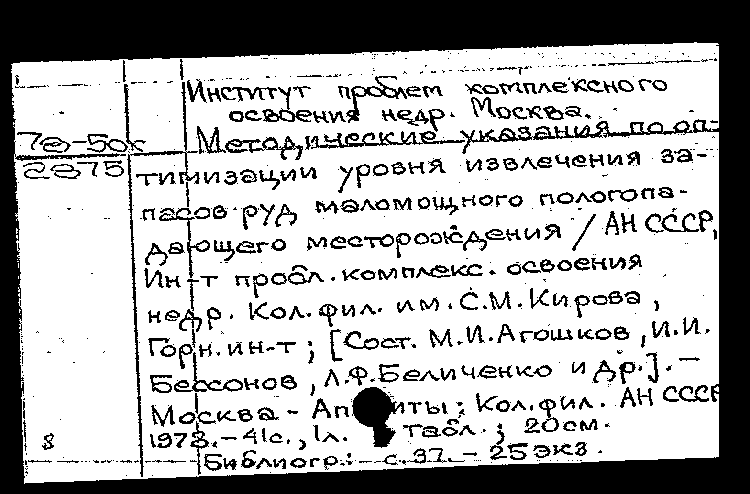 Институт проблем комплексного
освоения недр. Москва.
7в-5ок Методические указания по оп-
2875 тимизации уровня извлечения за-
пасов руд маломощного пологопа-
дающего месторождения / АН СССР,
Ин-т пробл. комплекс. освоения
недр. Кол. фил. им. С.М. Кирова,
Горн. ин-т ; [Сост. М.И. Агошков, И.И.
Бессонов, Л.Ф. Беличенко и др.]. —
Москва - Апатиты : Кол. фил. АН СССР
1978. - 41с., 1л. табл. ; 20см.
Библиогр.: с. 37. - 25 экз.